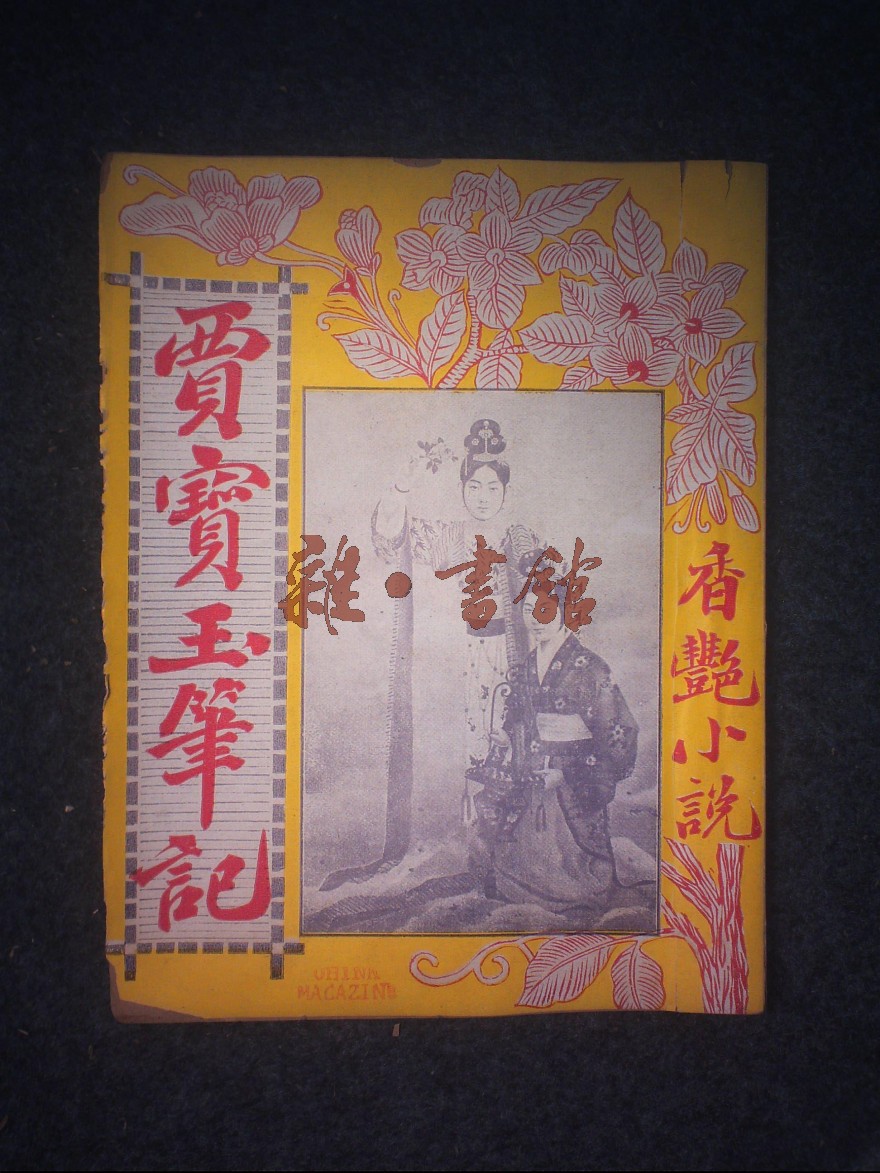 香艷小說
賈寶玉筆記
雜·書館
CHINA
MAGAZINE